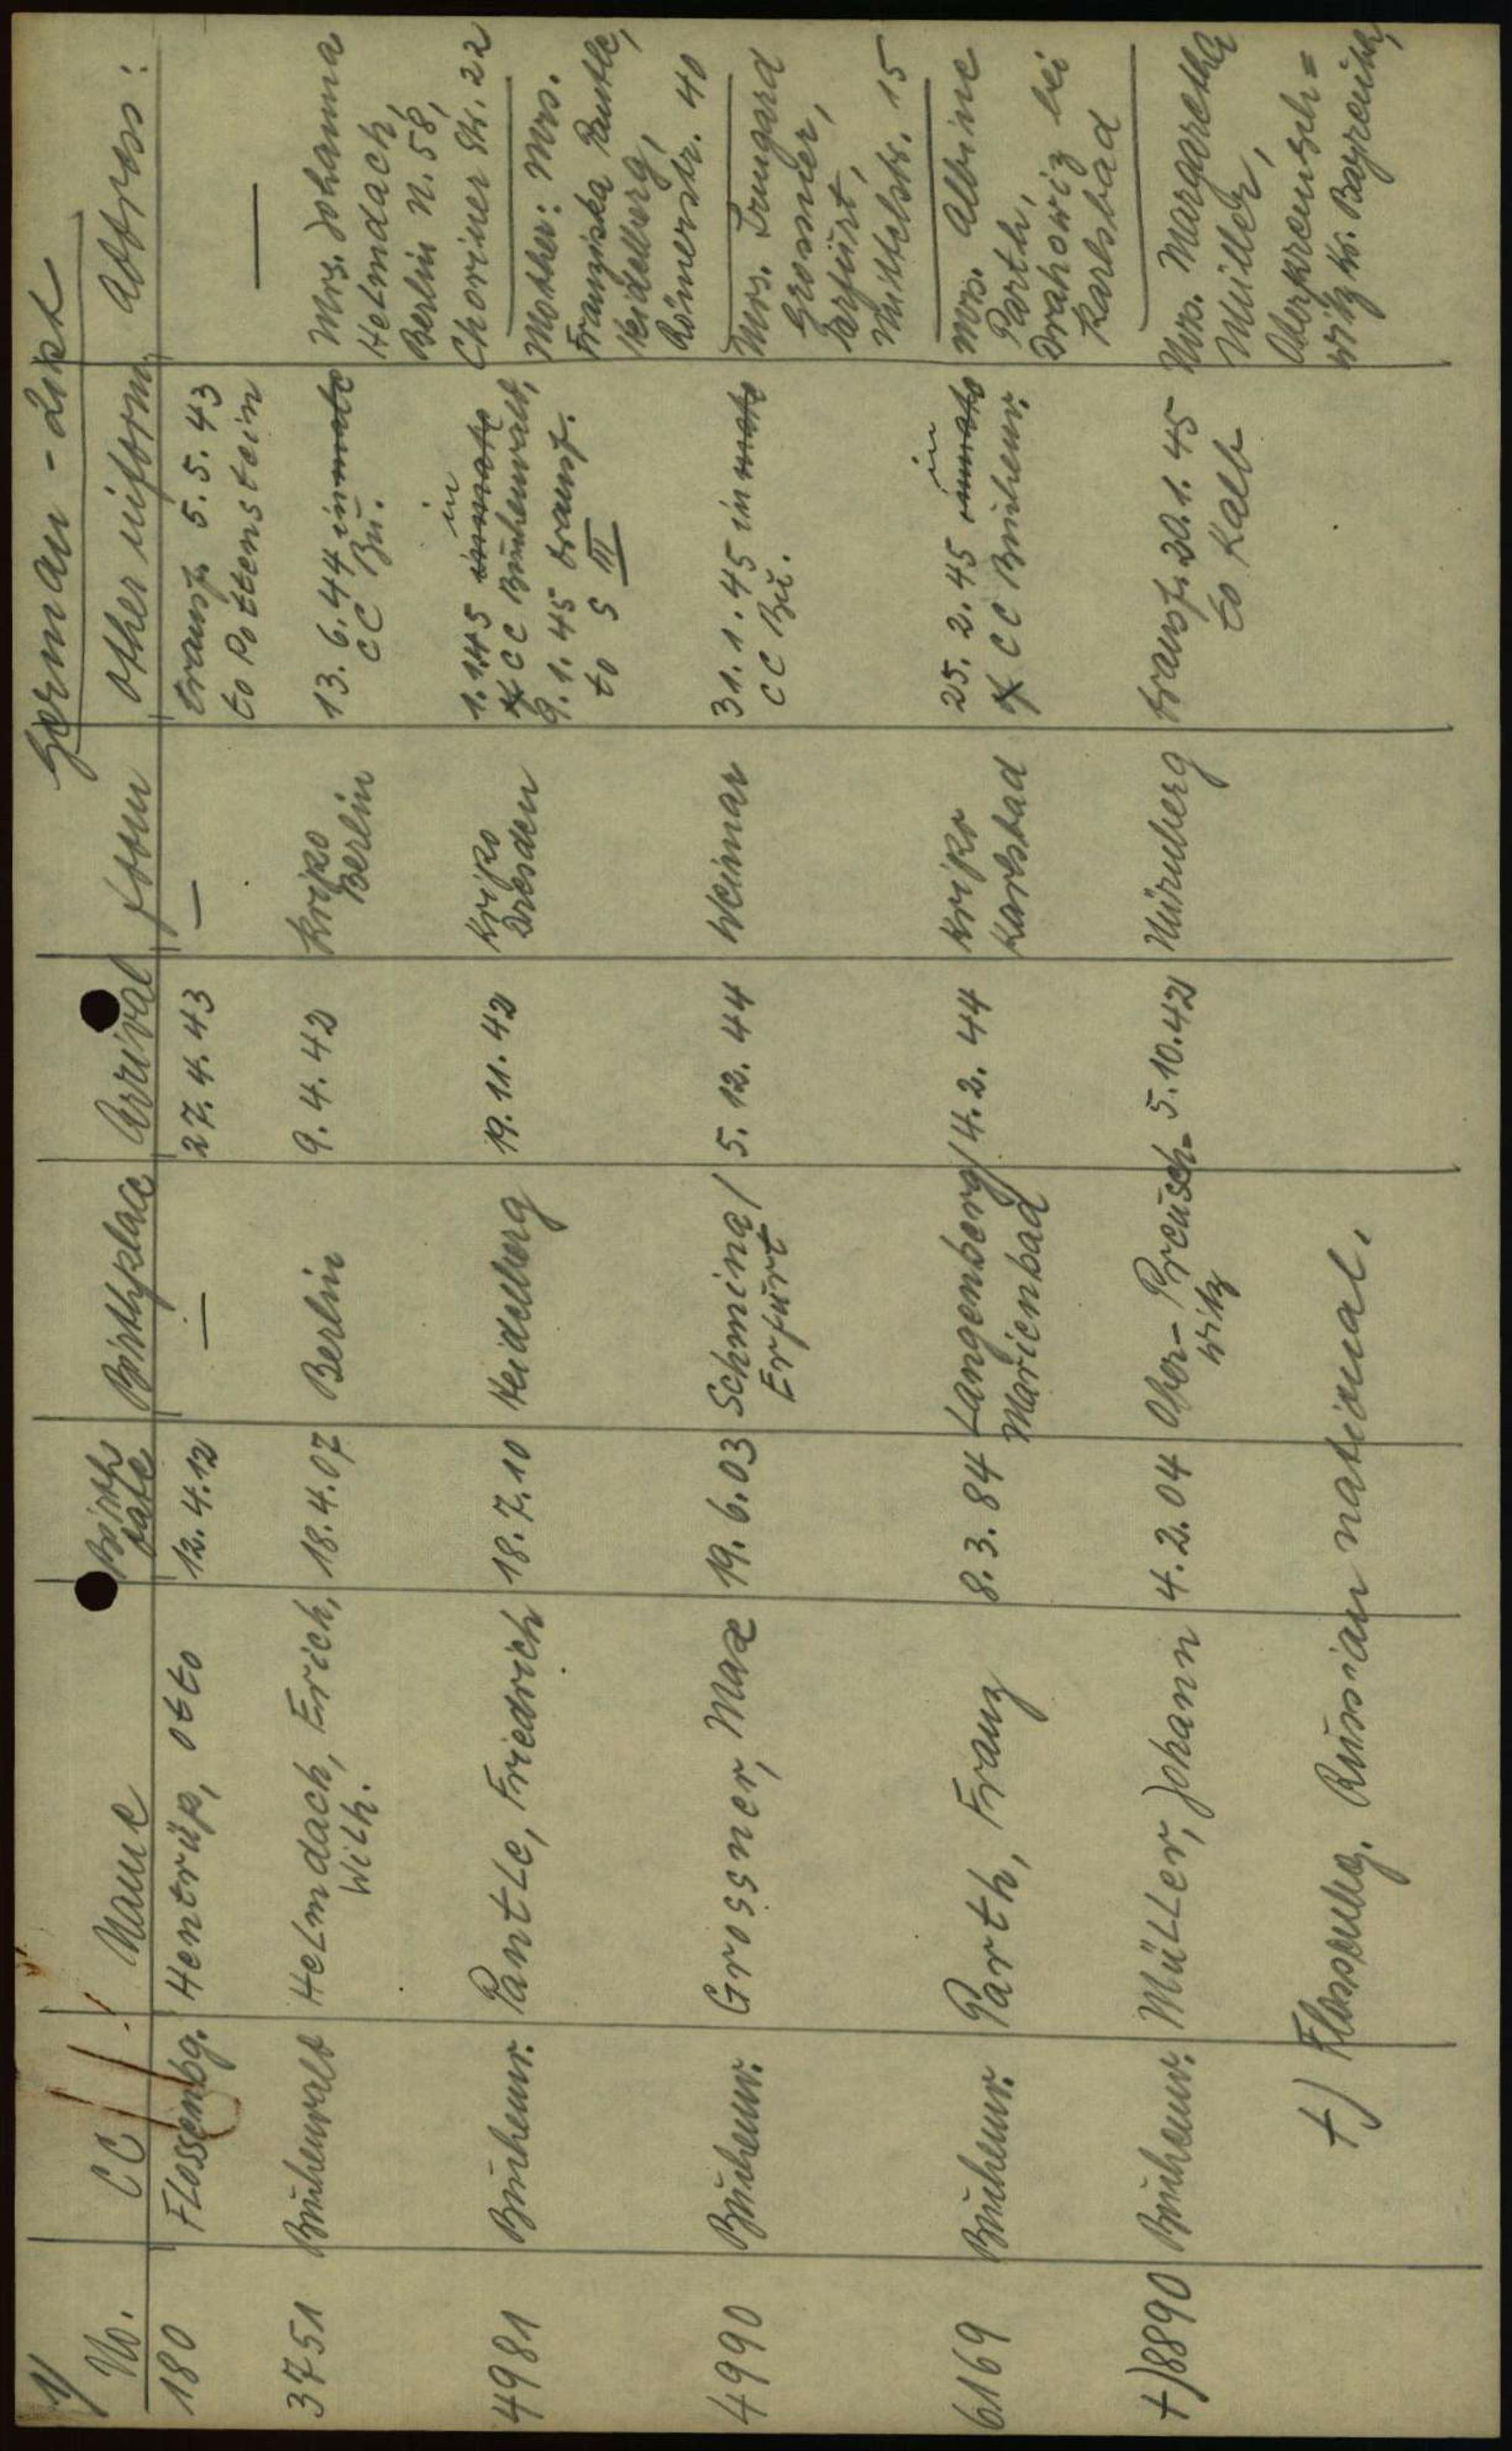 1/
German - List
No. CC Name Birth date Birthplace Arrival from other inform. Address:
180 Flossenbg. Hentrüp, Otto 12.4.12 — 27.4.43 — transf. 5.5.43 —
to Pottenstein
3751 Buchenwald Helmdach, Erich, 18.4.07 Berlin 9.4.42 Kripo 13.6.44 inmate Mrs. Johanna
Wilh. Berlin CC Bu. Helmdach,
Berlin N. 58,
Choriner Str. 22
4981 Buchenw. Pantle, Friedrich 18.7.10 Heidelberg 19.11.42 Kripo 1.1.45 inmate in Mother: Mrs.
Dresden CC Buchenwald, Franziska Pantle,
9.1.45 transf. Heidelberg,
to S III Römerstr. 40
4990 Buchenw. Grossner, Max 19.6.03 Schmina/ 5.12.44 Weimar 31.1.45 inmate Mrs. Irmgard
Erfurt CC Bu. Grossner,
Erfurt,
Mittelstr. 15
6169 Buchenw. Parth, Franz 8.3.84 Langenberg/ 4.2.44 Kripo 25.2.45 inmate in Mrs. Albine
Marienbad Karlsbad CC Buchenw. Parth,
Drahowiz bei
Karlsbad
+)8890 Buchenw. Müller, Johann 4.2.04 Ober-Preusch- 5.10.42 Nürnberg transf. 20.1.45 Mrs. Margaretha
witz to Kalb Müller,
Oberpreusch=
witz Kr. Bayreuth,
+) Flossenbg. Russian national.